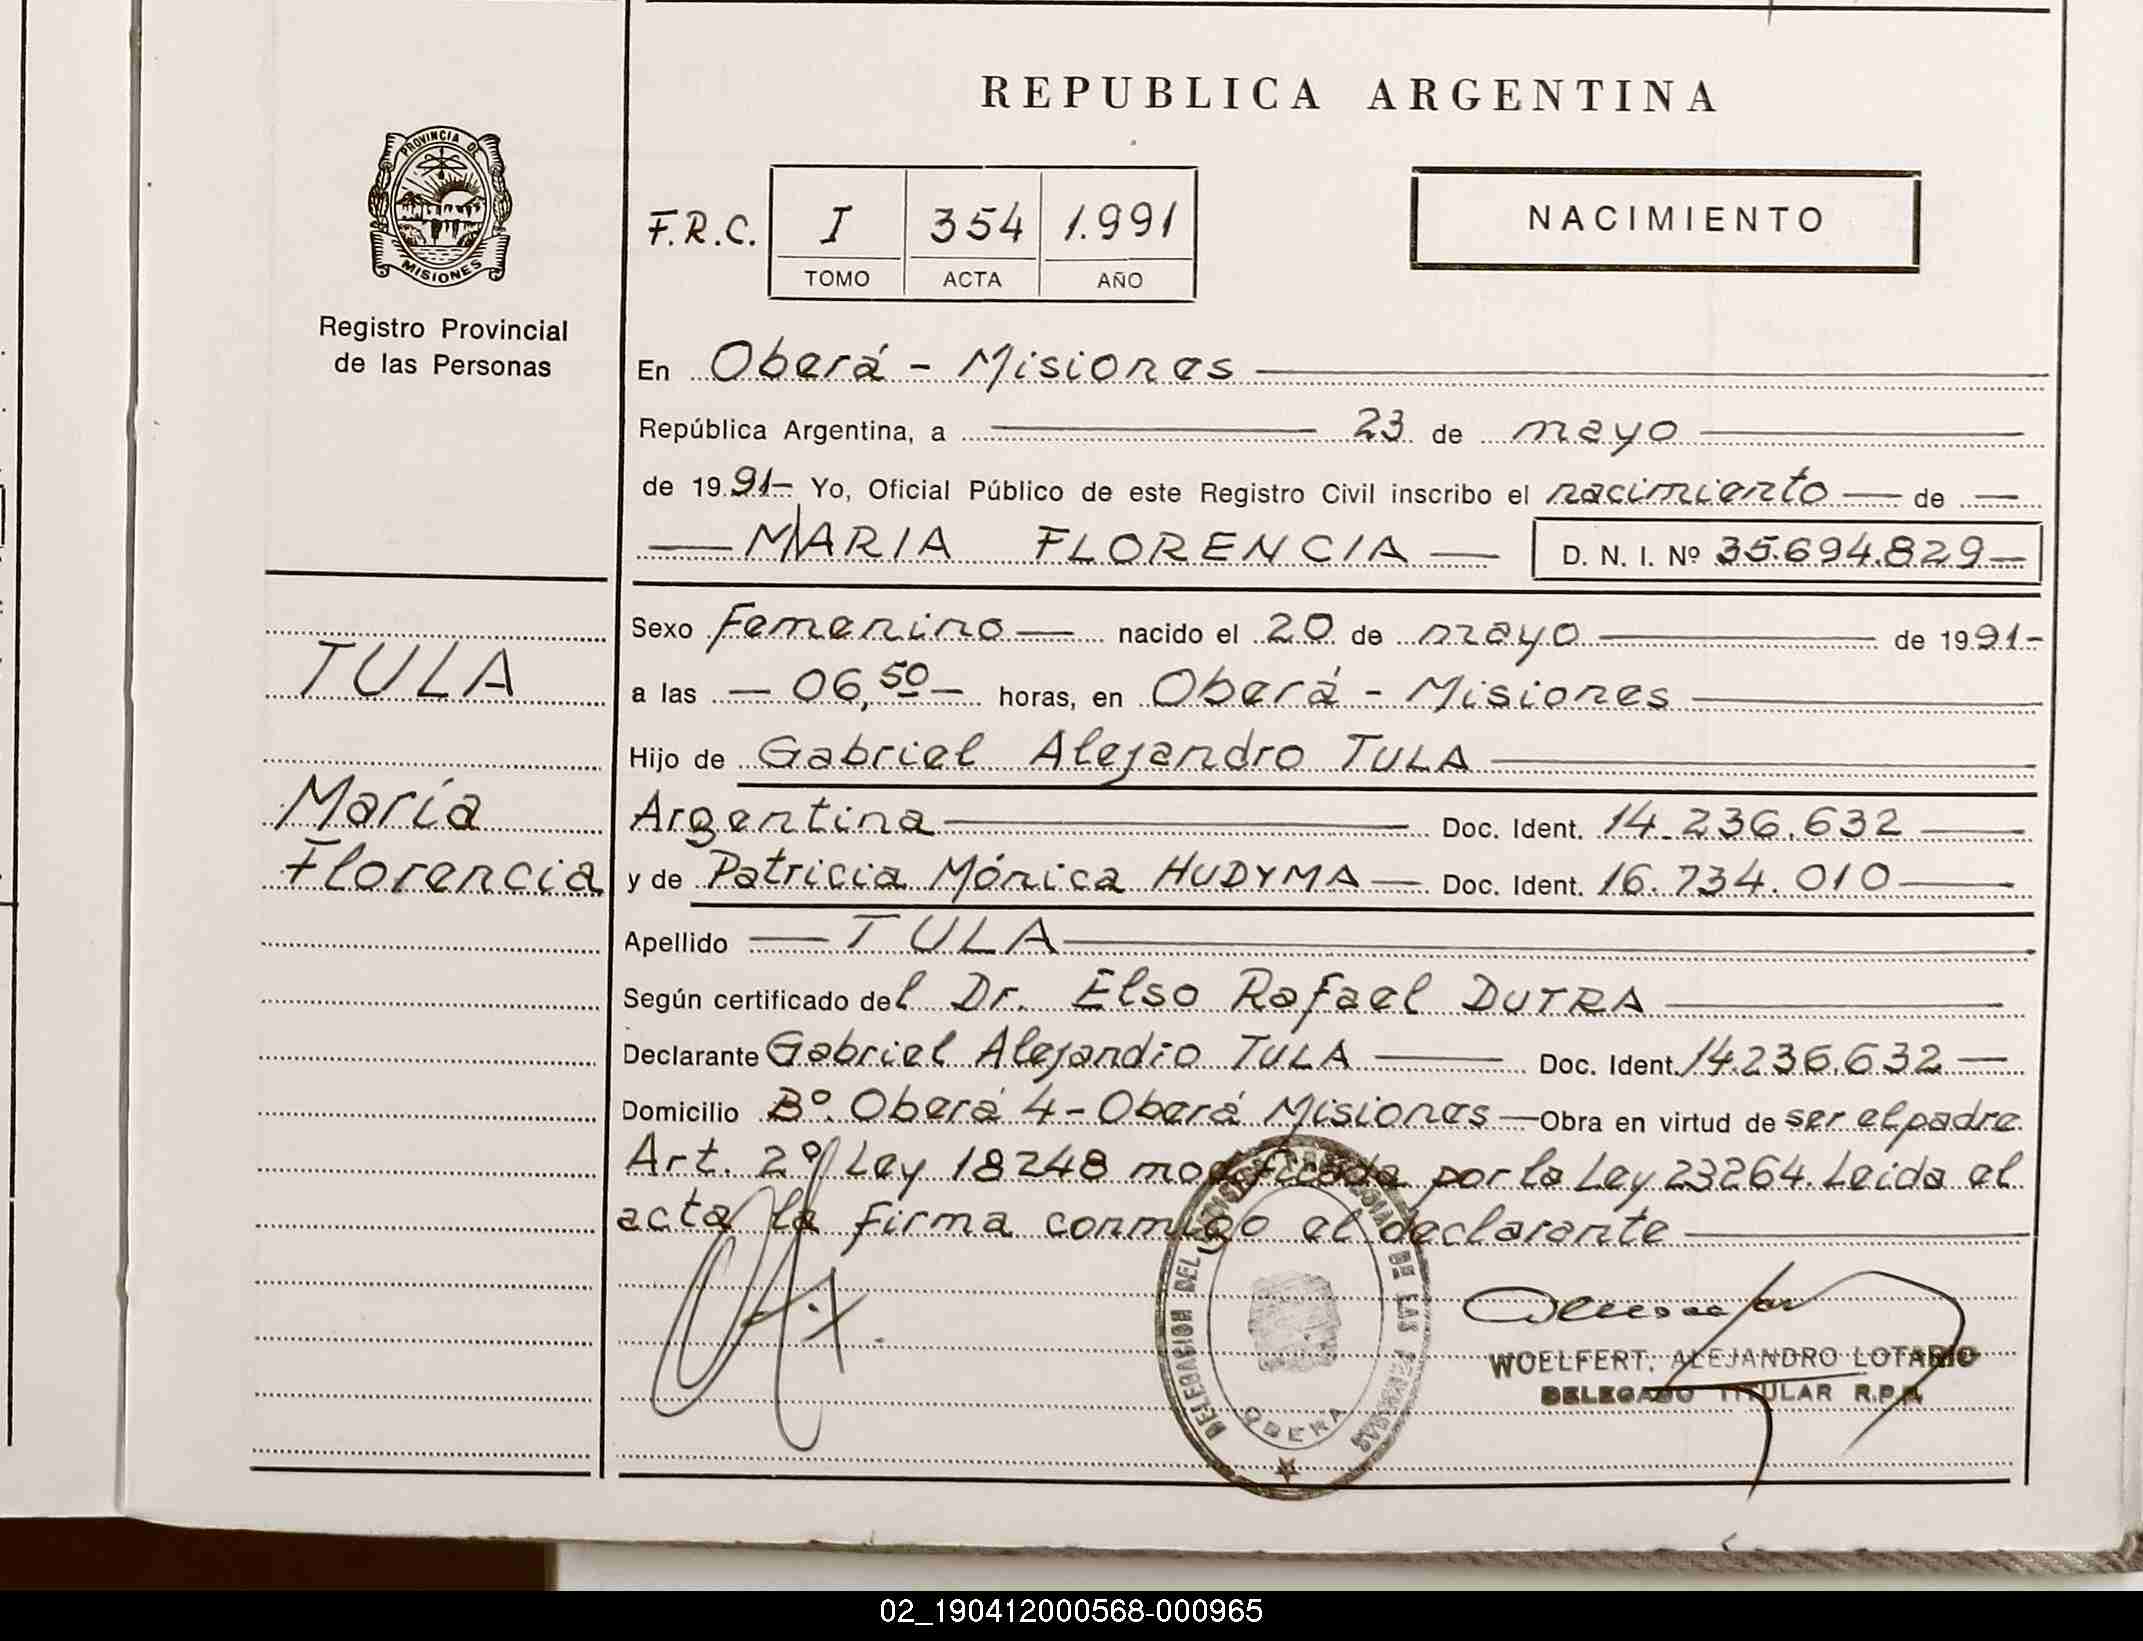 REPUBLICA ARGENTINA
PROVINCIA DE
MISIONES
Registro Provincial
de las Personas
F.R.C. I 354 1.991
TOMO ACTA AÑO
NACIMIENTO
En Oberá - Misiones
República Argentina, a 23 de mayo
de 1991- Yo, Oficial Público de este Registro Civil inscribo el nacimiento de
MARIA FLORENCIA D. N. I. Nº 35.694.829
TULA
María
Florencia
Sexo Femenino nacido el 20 de mayo de 1991-
a las 06,50 horas, en Oberá - Misiones
Hijo de Gabriel Alejandro TULA
Argentina Doc. Ident. 14.236.632
y de Patricia Mónica HUDYMA Doc. Ident. 16.734.010
Apellido TULA
Según certificado del Dr. Elso Rafael DUTRA
Declarante Gabriel Alejandro TULA Doc. Ident. 14.236.632
Domicilio Bº. Oberá 4 - Oberá Misiones Obra en virtud de ser el padre
Art. 2º Ley 18248 modificada por la Ley 23264. Leida el
acta la firma conmigo el declarante
DELEGACION DEL DE LAS PERSONAS
OBERA
WOELFERT, ALEJANDRO LOTARIO
DELEGADO TITULAR R.P.P.
02_190412000568-000965